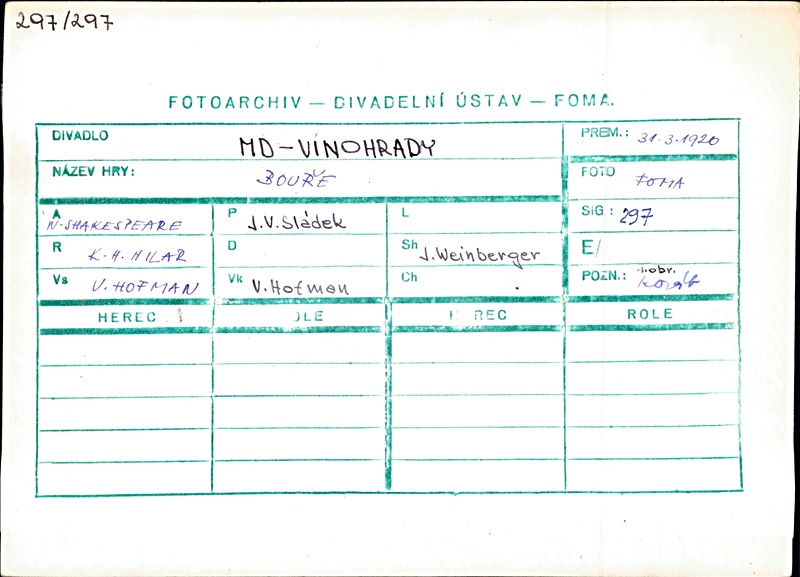 297/297
FOTOARCHIV — DIVADELNÍ ÚSTAV — FOMA.
DIVADLO MD-VINOHRADY PREM.: 31.3.1920
NÁZEV HRY: BOUŘE FOTO FOMA
A W.SHAKESPEARE P J.V.Sládek L SiG: 297
R K.H.HILAR D Sh J.Weinberger E/
Vs V.HOFMAN Vk V.Hofman Ch POZN.: 1.obr.
HEREC ROLE